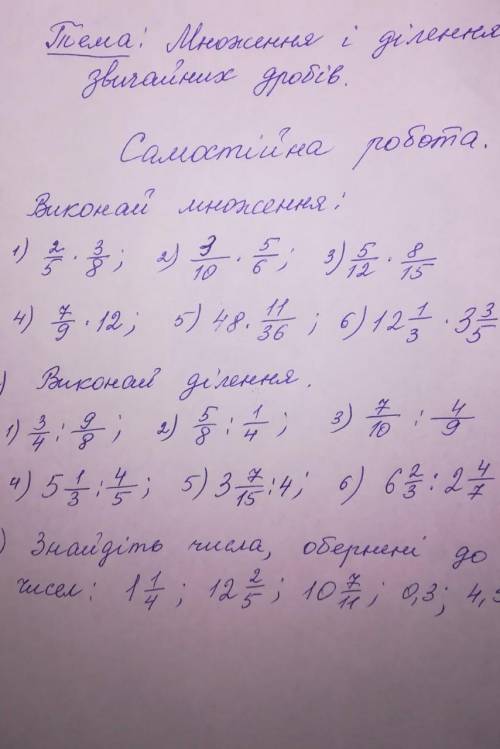 Тема: Множення і ділення
звичайних дробів.
Самостійна робота.
Виконай множення:
1) 2/5 · 3/8; 2) 3/10 · 5/6; 3) 5/12 · 8/15
4) 7/9 · 12; 5) 48 · 11/36; 6) 12 1/3 · 3 3/5
) Виконай ділення.
1) 3/4 : 9/8; 2) 5/8 : 1/4; 3) 7/10 : 4/9
4) 5 1/3 : 4/5; 5) 3 7/15 : 4; 6) 6 2/3 : 2 4/7
) Знайдіть числа, обернені до
чисел: 1 1/4; 12 2/5; 10 7/11; 0,3; 4,